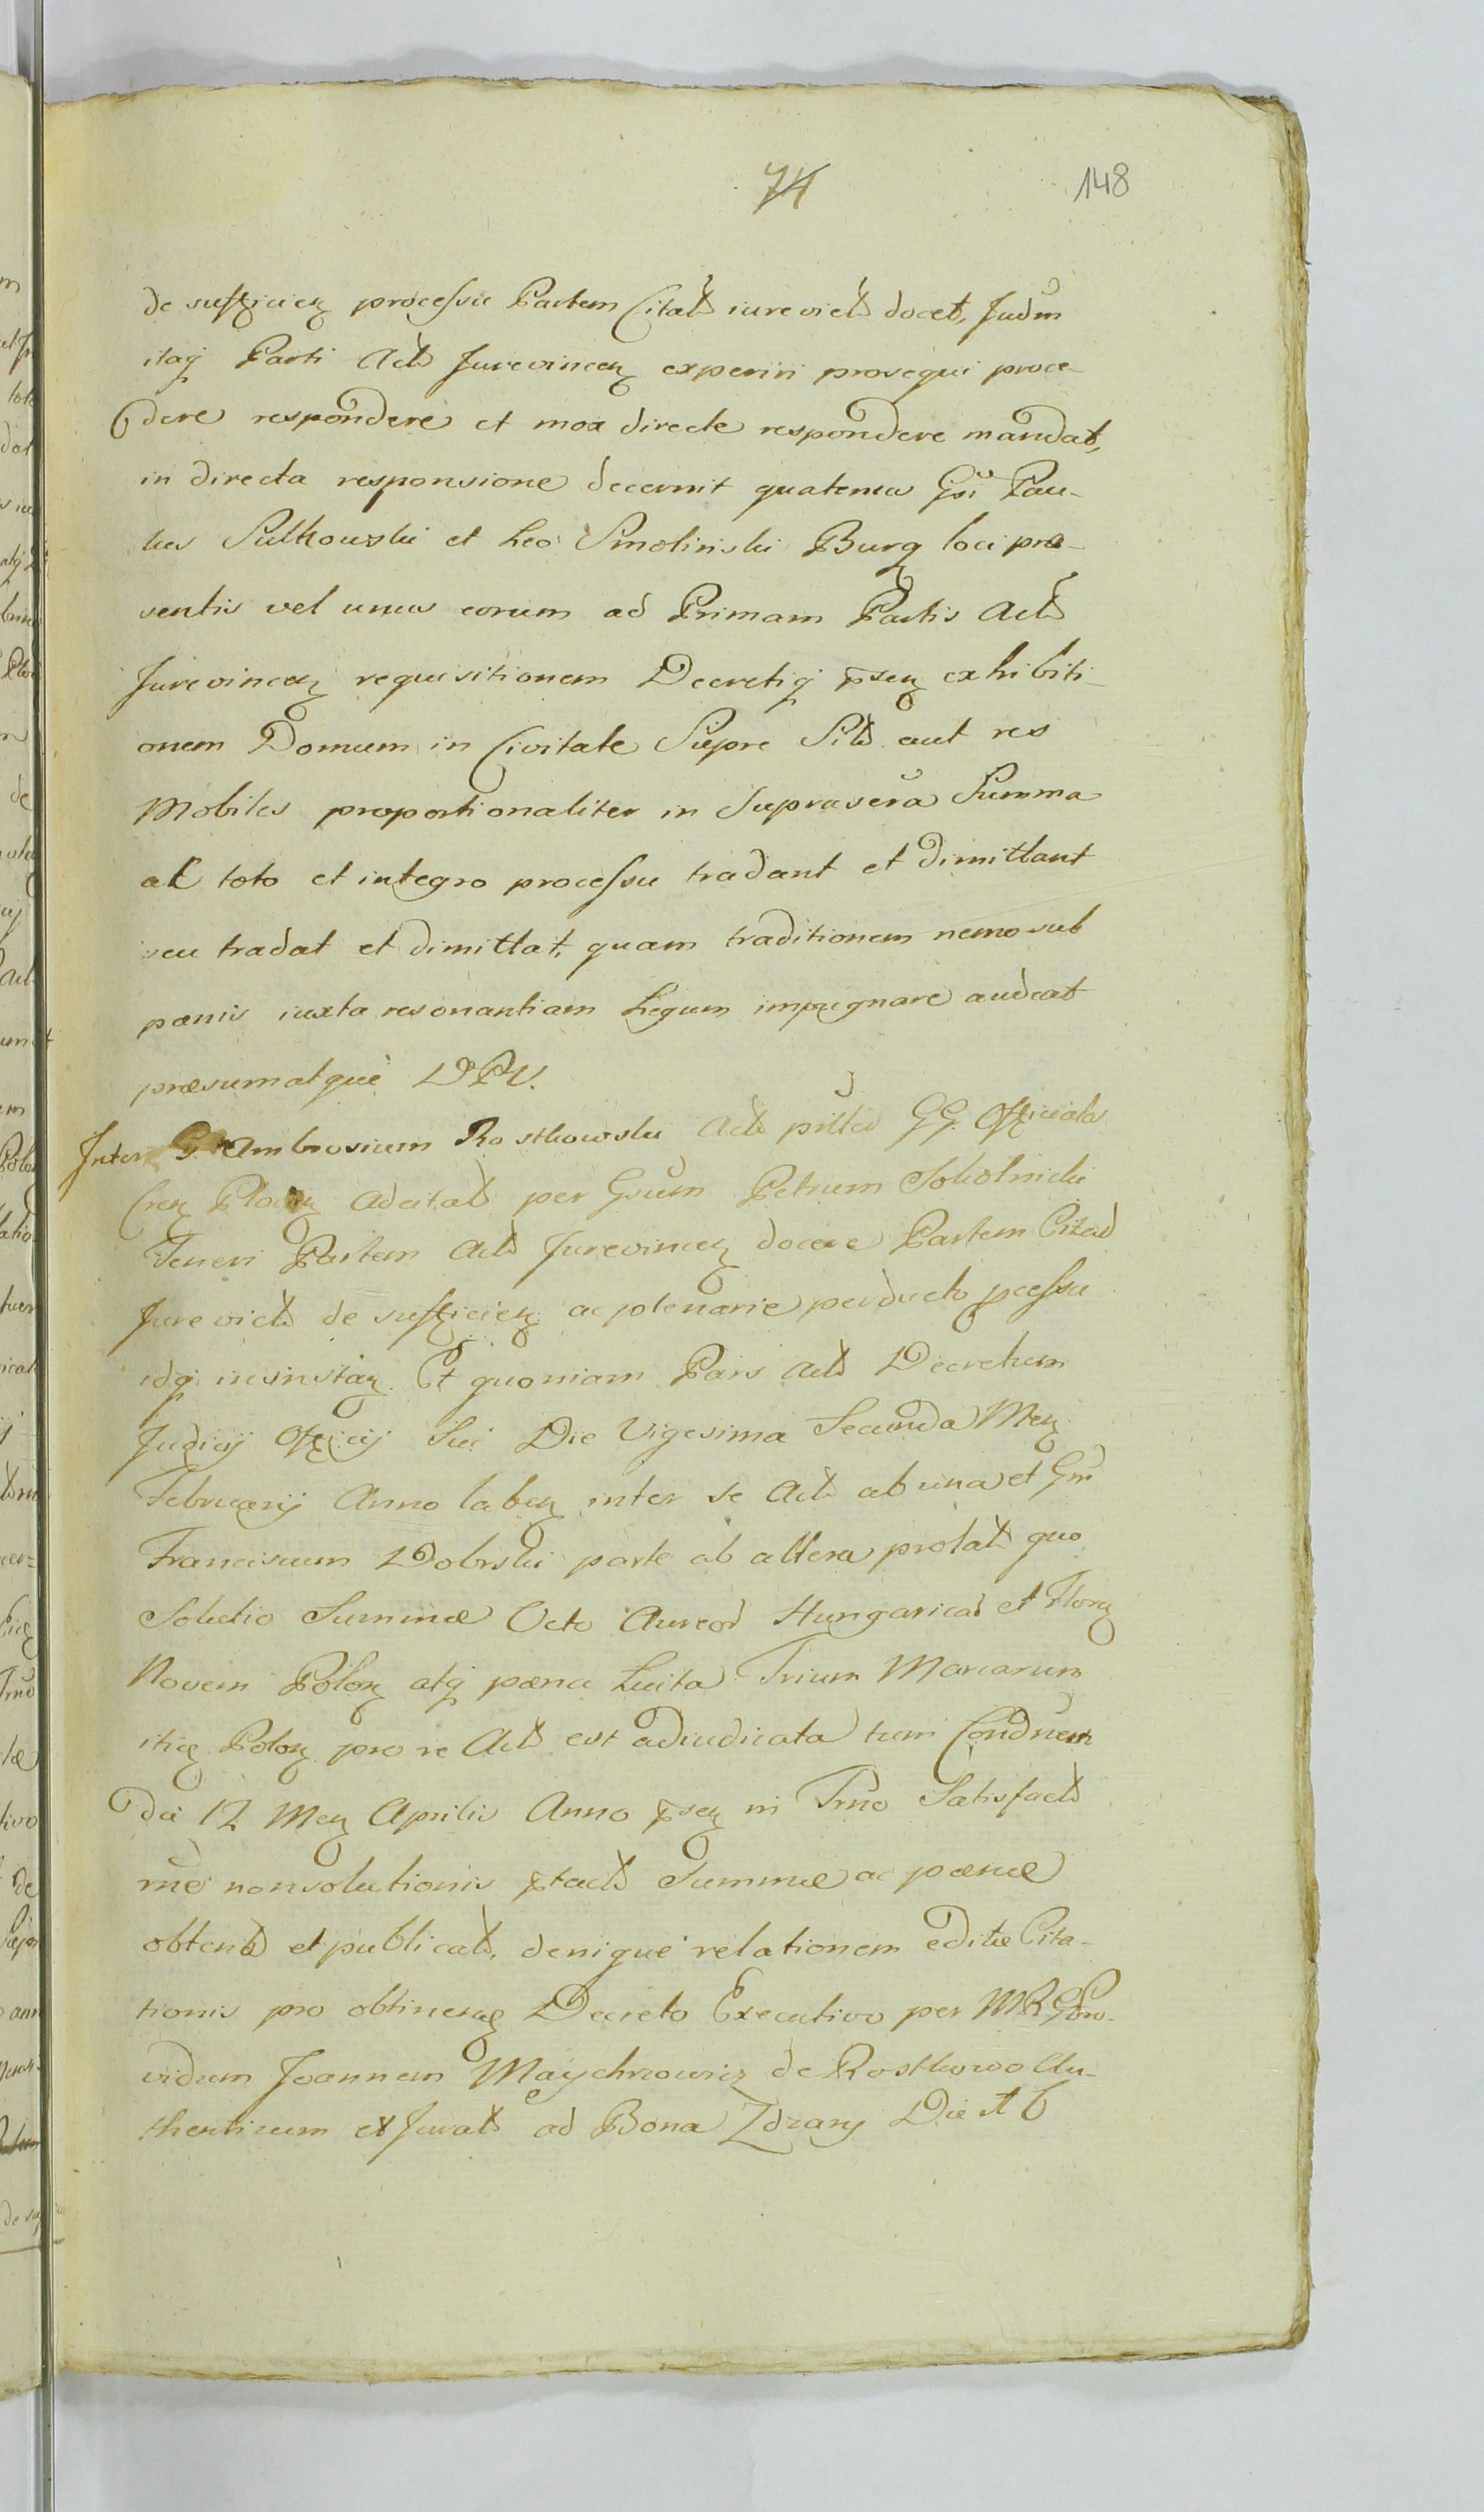 74 148
de sufficien processu Partem Citatt iurevictt docet, Judm
itaq Parti Actt Jurevincen experiri prosequi proce-
dere respondere et mox directe respondere mandat,
in directa responsione decernit quatenus Gsi Pau-
lus Sulkowski et Leo Smolinski Burg loci præ-
sentis vel unus eorum ad Primam Partis Actt
Jurevincen requisitionem Decretiq psen exhibiti-
onem Domum in Civitate Sierpc Sitt aut res
Mobiles proportionaliter in Suprasera Summa
ac toto et integro processu tradant et dimittant
seu tradat et dimittat, quam traditionem nemo sub
pœnis iuxta resonantiam Legum impugnare audeat
præsumatquè DPV.
Inter G. Ambrosium Rostkowski Actt GG. Officiales
Cren Plocen Adcitatt per Gsum Petrum Sokolnicki
Teneri Partem Actt Jurevincen docere Partem Citatt
Jurevictt de sufficien ac plenarie perducto pcessu
idq in instan. Et quoniam Pars Actt Decretum
Judicij Officij Sui Die Vigesima Secunda Men
Februarij Anno laben inter se Actt ab una et Gm
Franciscum Dobrski parte ab altera prolatt quo
Solutio Summæ Octo Aureor Hungarical et Floren
Novem Polon atq pœna Luita Trium Marcarum
itid Polon pro re Actt est adiudicata tum Condnem
Die 12 Men Aprilis Anno psen in Trno Satisfactt
rnè nonsolutionis ptactt Summæ ac pœnæ
obtentt et publicatt, deniquè relationem editæ Cita-
tionis pro obtinen Decreto Executivo per MR Pro-
vidum Joannem Maychrowicz de Rostkowo Au-
thenticum et Juratt ad Bona Zdzary Die 16